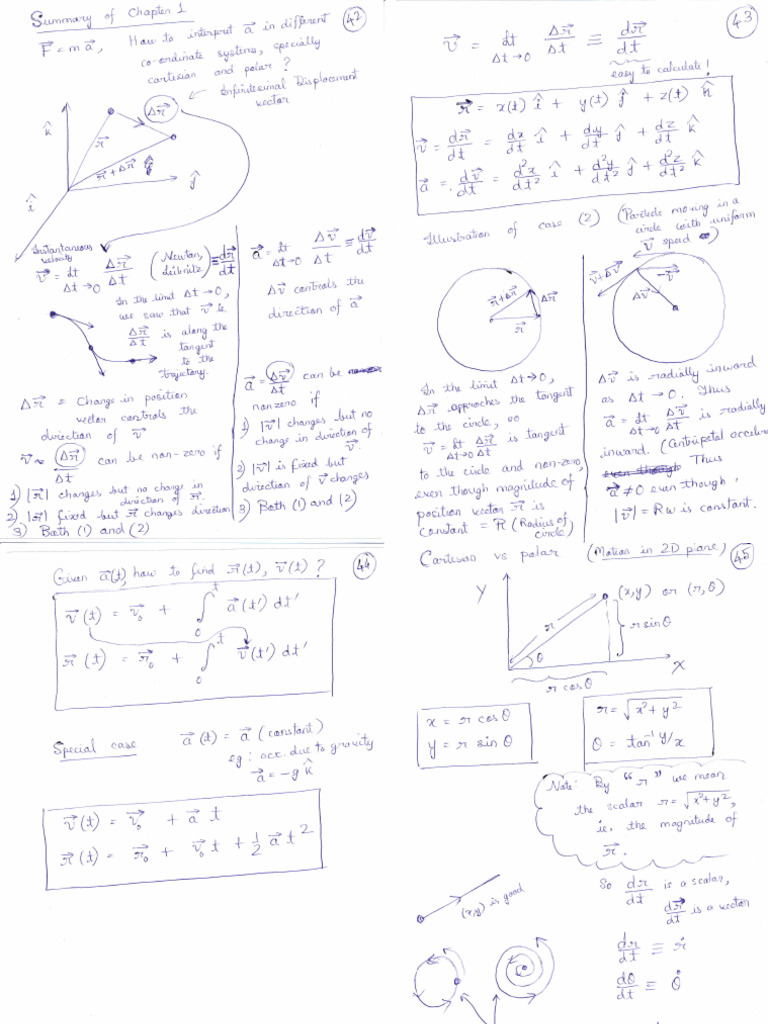 Summary of Chapter 1
42
F⃗ = m a⃗, How to interpret a⃗ in different
co-ordinate systems, specially
cartesian and polar?
Δr⃗
Infinitesimal Displacement
vector
k̂
r⃗
r⃗ + Δr⃗
ĵ
î
Instantaneous
velocity
v⃗ = lt Δt→0 Δr⃗/Δt (Newton, Leibnitz) ≡ dr⃗/dt
In the limit Δt→0,
we saw that v⃗ is
Δr⃗/Δt is along the
tangent
to the
trajectory.
Δr⃗ = Change in position
vector controls the
direction of v⃗
v⃗ ≈ Δr⃗/Δt can be non-zero if
1) |r⃗| changes but no change in
direction of r⃗.
2) |r⃗| fixed but r⃗ changes direction
3) Both (1) and (2)
a⃗ = lt Δt→0 Δv⃗/Δt ≡ dv⃗/dt
Δv⃗ controls the
direction of a⃗
a⃗ = Δv⃗/Δt can be
nonzero if
1) |v⃗| changes but no
change in direction of
v⃗.
2) |v⃗| is fixed but
direction of v⃗ changes
3) Both (1) and (2)
43
v⃗ = lt Δt→0 Δr⃗/Δt ≡ dr⃗/dt
easy to calculate!
r⃗ = x(t) î + y(t) ĵ + z(t) k̂
v⃗ = dr⃗/dt = dx/dt î + dy/dt ĵ + dz/dt k̂
a⃗ = dv⃗/dt = d²x/dt² î + d²y/dt² ĵ + d²z/dt² k̂
Illustration of case (2) (Particle moving in a
circle with uniform
speed)
r⃗+Δr⃗
Δr⃗
r⃗
In the limit Δt→0,
Δr⃗ approches the tangent
to the circle, so
v⃗ = lt Δt→0 Δr⃗/Δt is tangent
to the circle and non-zero,
even though magnitude of
position vector r⃗ is
constant = R (Radius of
circle)
v⃗
v⃗+Δv⃗
-v⃗
Δv⃗
Δv⃗ is radially inward
as Δt→0. Thus
a⃗ = lt Δt→0 Δv⃗/Δt is radially
inward. (Centripetal acceleration
even though Thus
a⃗ ≠ 0 even though,
|v⃗| = Rω is constant.
44
Given a⃗(t), how to find r⃗(t), v⃗(t)?
v⃗(t) = v⃗₀ + ∫₀ᵗ a⃗(t') dt'
r⃗(t) = r⃗₀ + ∫₀ᵗ v⃗(t') dt'
Special case a⃗(t) = a⃗ (constant)
eg: acc. due to gravity
a⃗ = -g k̂
v⃗(t) = v⃗₀ + a⃗ t
r⃗(t) = r⃗₀ + v⃗₀ t + 1/2 a⃗ t²
Cartesian vs polar (Motion in 2D plane)
45
Y
(x,y) or (r,θ)
r
r sinθ
θ
X
r cosθ
x = r cosθ
y = r sinθ
r = √x²+y²
θ = tan⁻¹ y/x
Note: By "r" we mean
the scalar r = √x²+y²,
ie. the magnitude of
r⃗.
So dr/dt is a scalar,
dr⃗/dt is a vector
(x,y) is good
dr/dt ≡ ṙ
dθ/dt ≡ θ̇